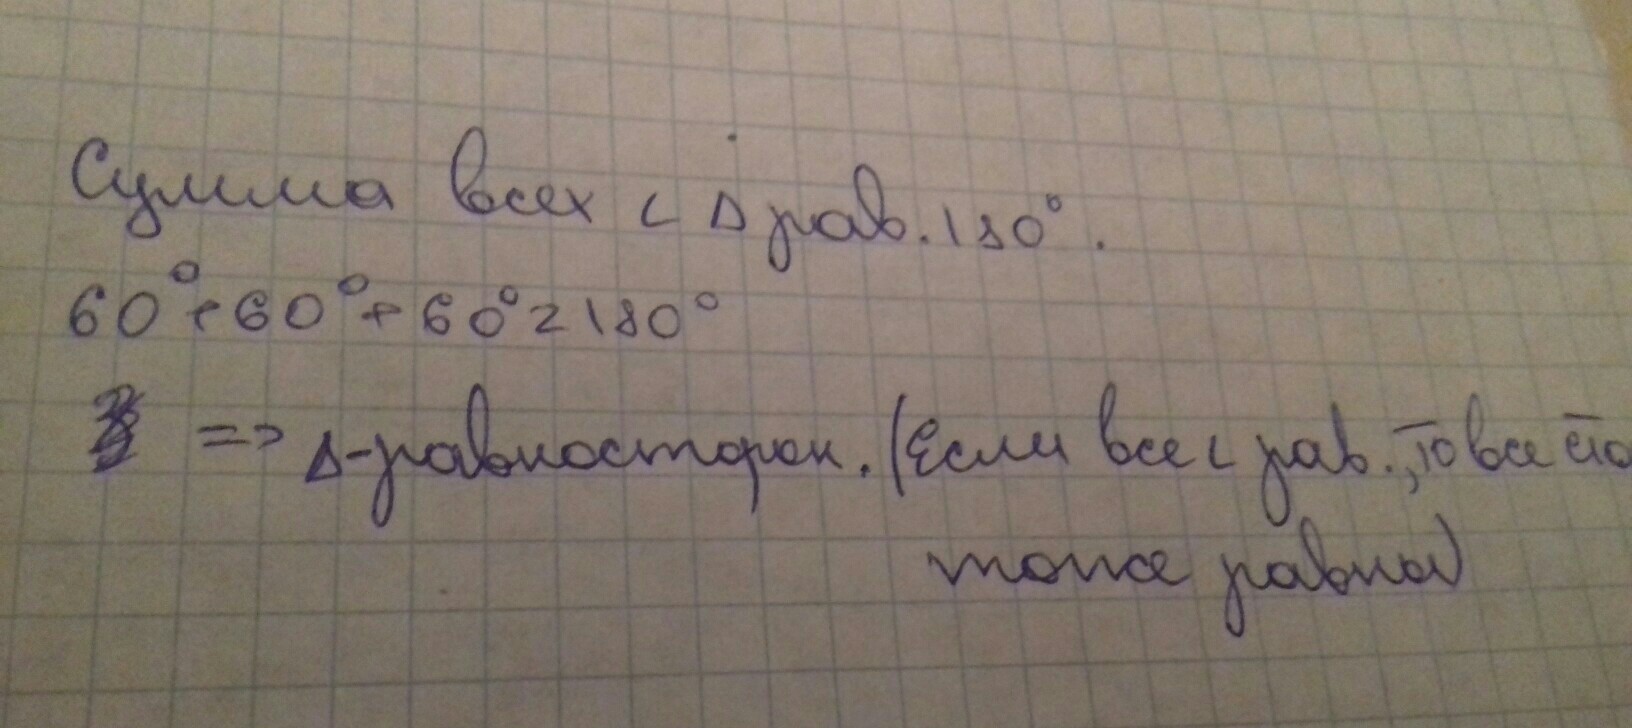 Сумма всех ∠ Δ рав. 180°.
60°+60°+60°=180°
=> Δ-равносторон. (Если все ∠ рав., то все сто
тоже равны)